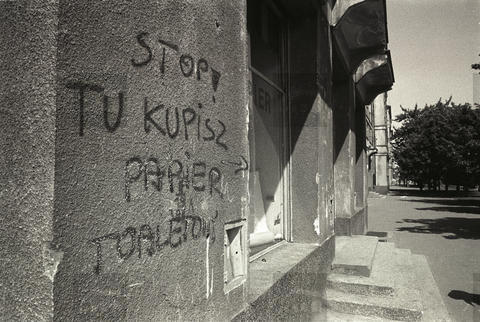 STOP!
TU KUPISZ
PAPIER →
TOALETOWY
PAPIER